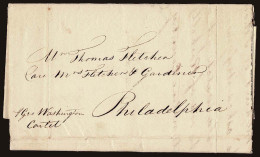 Mr Thomas Fletcher
Care Messrs Fletcher & Gardiner
Philadelphia
pr Geo Washington
Cartel